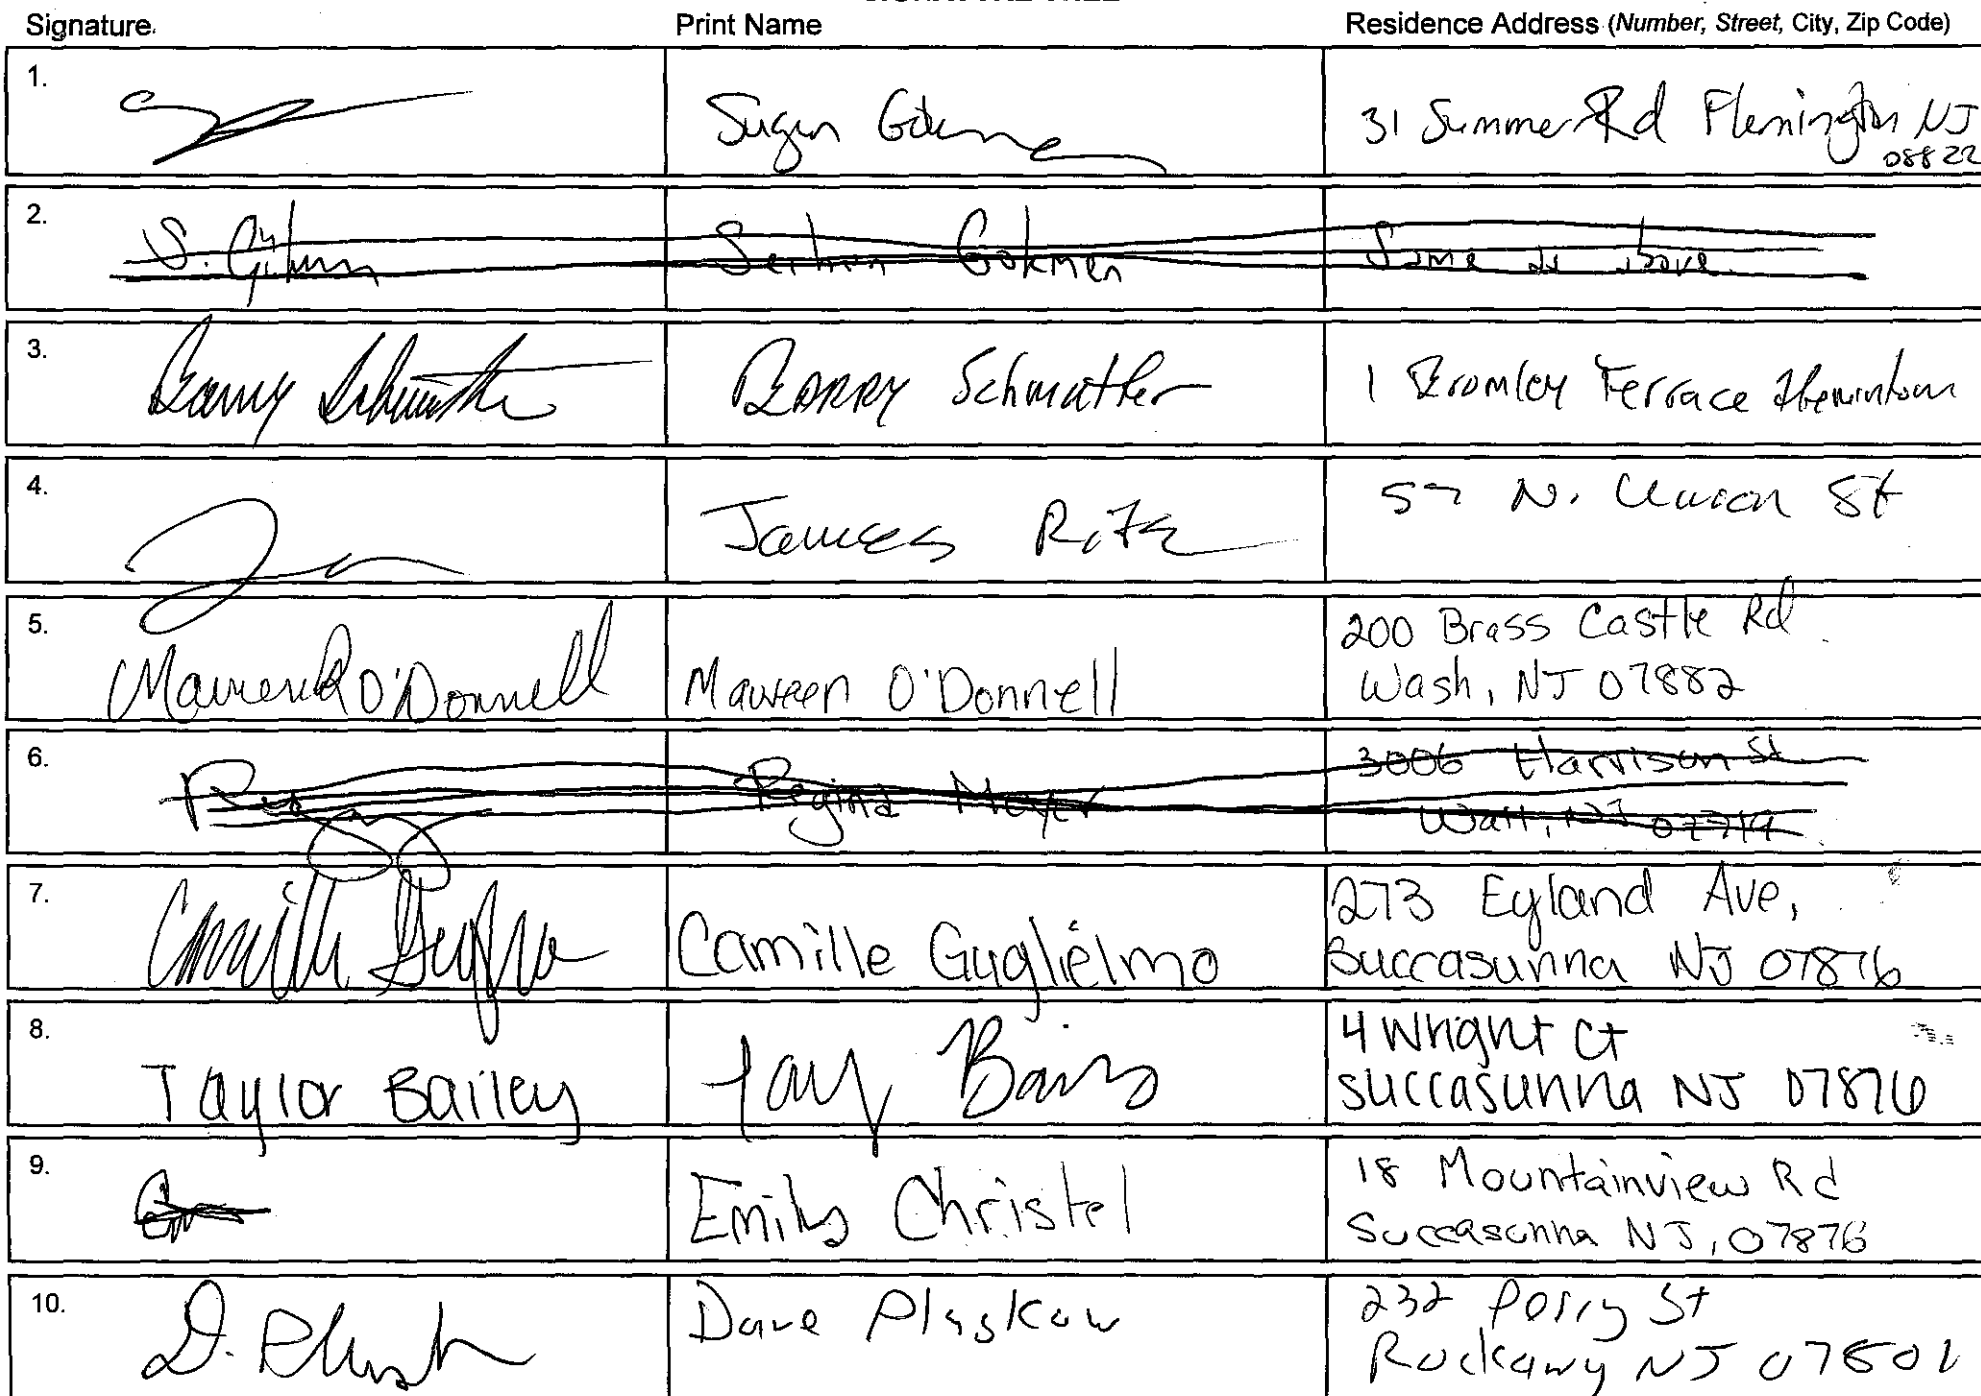 Signature
Print Name
Residence Address (Number, Street, City, Zip Code)
1.
31 Summer Rd Flemington NJ
08822
2.
S. Gökmen
Gokmen
Same as above
3.
Barry
BARRY Schmatler
1 Bromley Terrace
4.
James Ritz
57 N. Union St
5.
Maureen O'Donnell
Maureen O'Donnell
200 Brass Castle Rd.
Wash, NJ 07882
6.
Regina Meyer
3006 Harrison St
Wall, NJ 07719
7.
Camille
Camille Guglielmo
273 Eyland Ave,
Succasunna NJ 07876
8.
Taylor Bailey
4 Wright Ct
Succasunna NJ 07876
9.
Emily Christel
18 Mountainview Rd
Succasunna NJ, 07876
10.
Dave Plaskow
232 Perry St
Rockawy NJ 07801